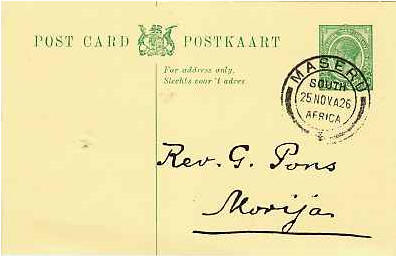 POST CARD POSTKAART
For address only.
Slechts voor 't adres.
MASERU
SOUTH
25 NOV. A 26
AFRICA
Rev. G. Pons
Morija